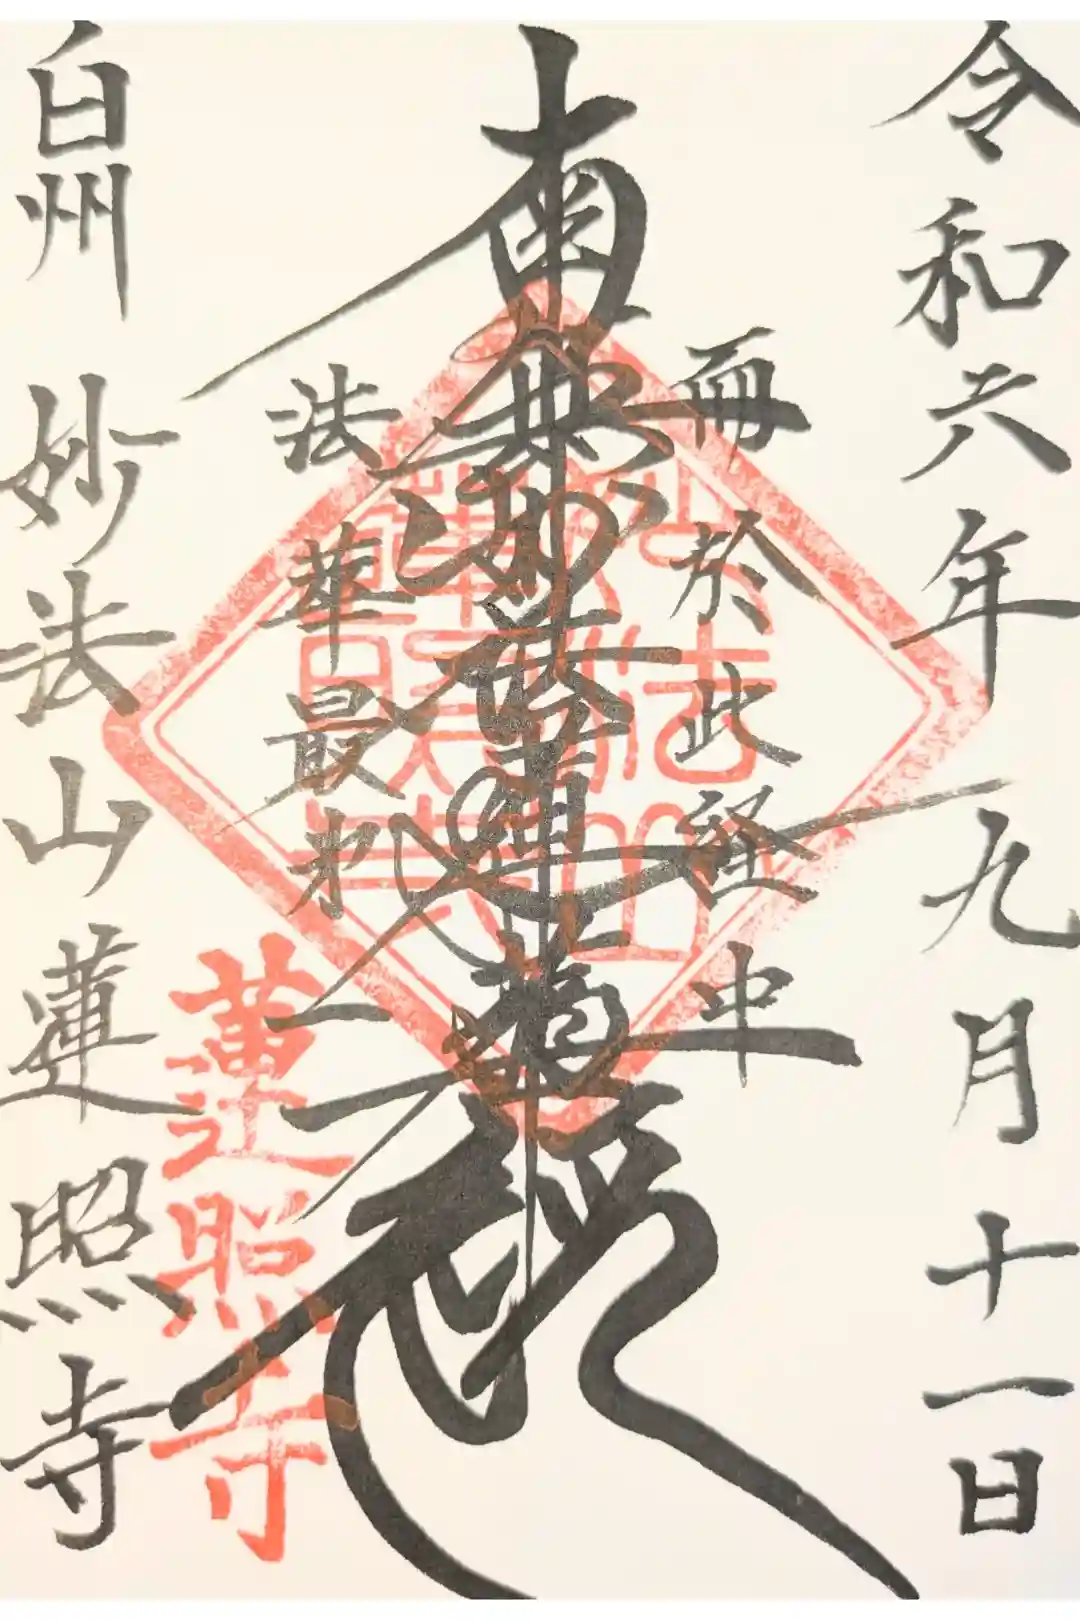 令和六年九月十一日
而於此経中
南無妙法蓮華経
法華最第一
妙法山
蓮照寺
白州 妙法山蓮照寺